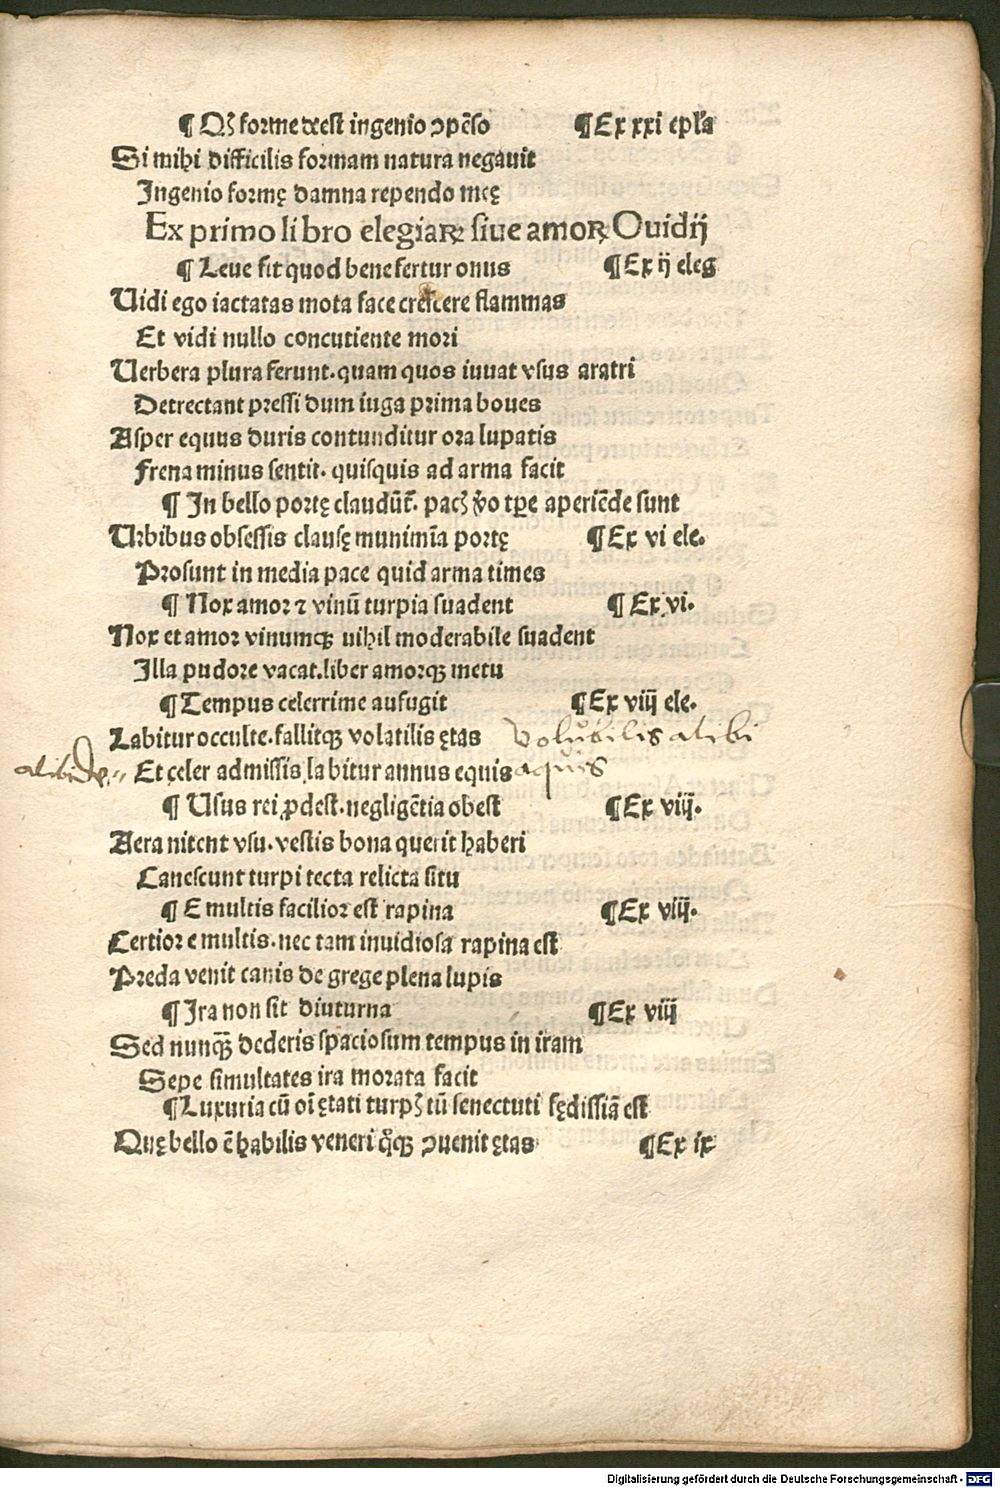 ¶ Qꝫ forme deest ingenio ꝯpēso ¶ Ex xxi epl̃a
Si mihi difficilis formam natura negauit
Ingenio formę damna rependo meę
Ex primo libro elegiaꝝ siue amoꝝ Ouidij
¶ Leue fit quod bene fertur onus ¶ Ex ij eleg
Uidi ego iactatas mota face crescere flammas
Et vidi nullo concutiente mori
Uerbera plura ferunt. quam quos iuuat vsus aratri
Detrectant pressi dum iuga prima boues
Asper equus duris contunditur ora lupatis
Frena minus sentit. quisquis ad arma facit
¶ In bello portę claudūt̄. pacꝫ v̊o tp̱e aperiēde sunt
Urbibus obsessis clausę munimīa portę ¶ Ex vi ele.
Prosunt in media pace quid arma times
¶ Nox amor ⁊ vinū turpia suadent ¶ Ex vi.
Nox et amor vinumqꝫ nihil moderabile suadent
Illa pudore vacat. liber amorqꝫ metu
¶ Tempus celerrime aufugit ¶ Ex viij ele.
Labitur occulte. fallitqꝫ volatilis ętas volubilis alibi
alibi Et celer admissis labitur annus equis aquis
¶ Usus rei ꝓdest. negligētia obest ¶ Ex viij.
Aera nitent vsu. vestis bona querit haberi
Canescunt turpi tecta relicta situ
¶ E multis facilior est rapina ¶ Ex viij.
Certior e multis. nec tam inuidiosa rapina est
Preda venit canis de grege plena lupis
¶ Ira non sit diuturna ¶ Ex viij
Sed nunqꝫ̄ dederis spaciosum tempus in iram
Sepe simultates ira morata facit
¶ Luxuria cū oī ętati turpꝫ tū senectuti fędissiā est
Quę bello ē habilis veneri qͦqꝫ ꝯuenit ętas ¶ Ex ix
Digitalisierung gefördert durch die Deutsche Forschungsgemeinschaft - DFG